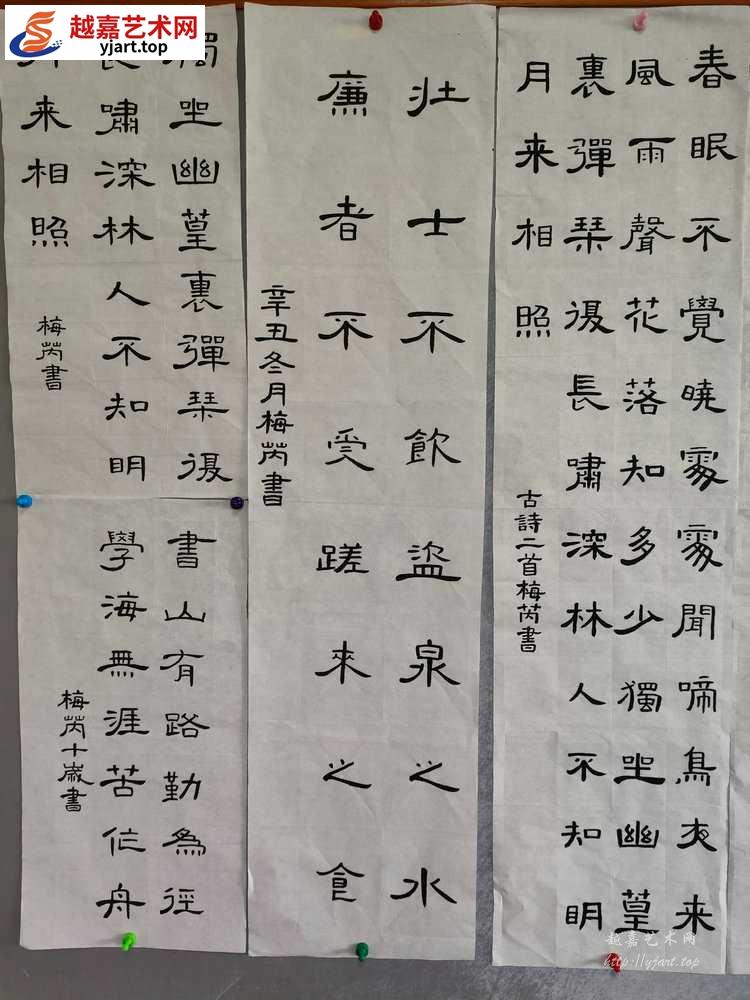 越嘉艺术网
yjart.top
春眠不覺曉處處聞啼鳥夜来
風雨聲花落知多少獨坐幽篁
裏彈琹復長嘯深林人不知明
月来相照
古詩二首梅芮書
壯士不飲盜泉之水
廉者不受蹉來之食
辛丑冬月梅芮書
獨坐幽篁裏彈琹復
長嘯深林人不知明
月来相照
梅芮書
書山有路勤為徑
學海無涯苦作舟
梅芮十歲書
越嘉艺术网
http://yjart.top